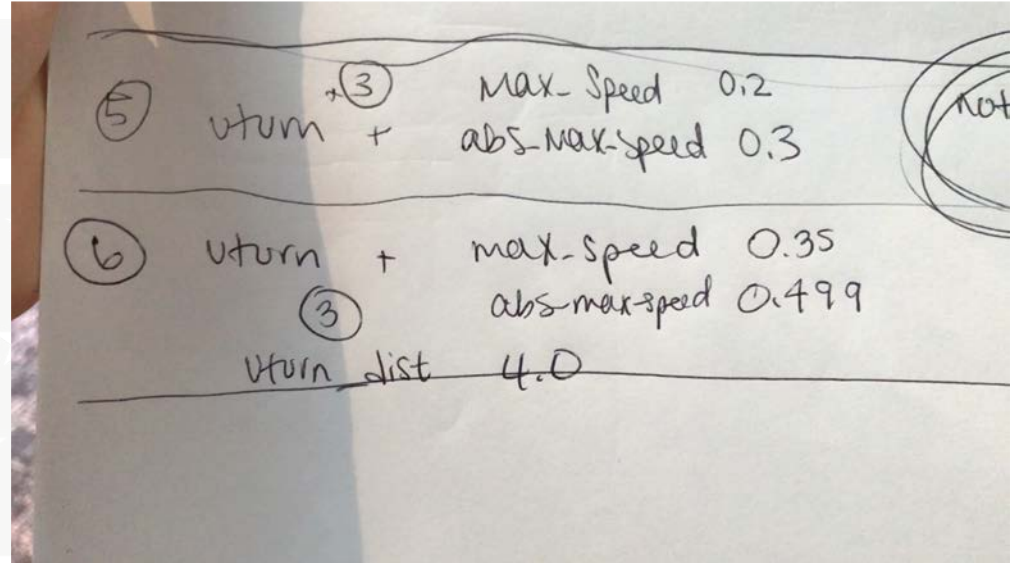 ③ max-speed 0.2
⑤ uturn + abs-max-speed 0.3
not
⑥ uturn + max-speed 0.35
③ abs-max-speed 0.499
uturn_dist 4.0